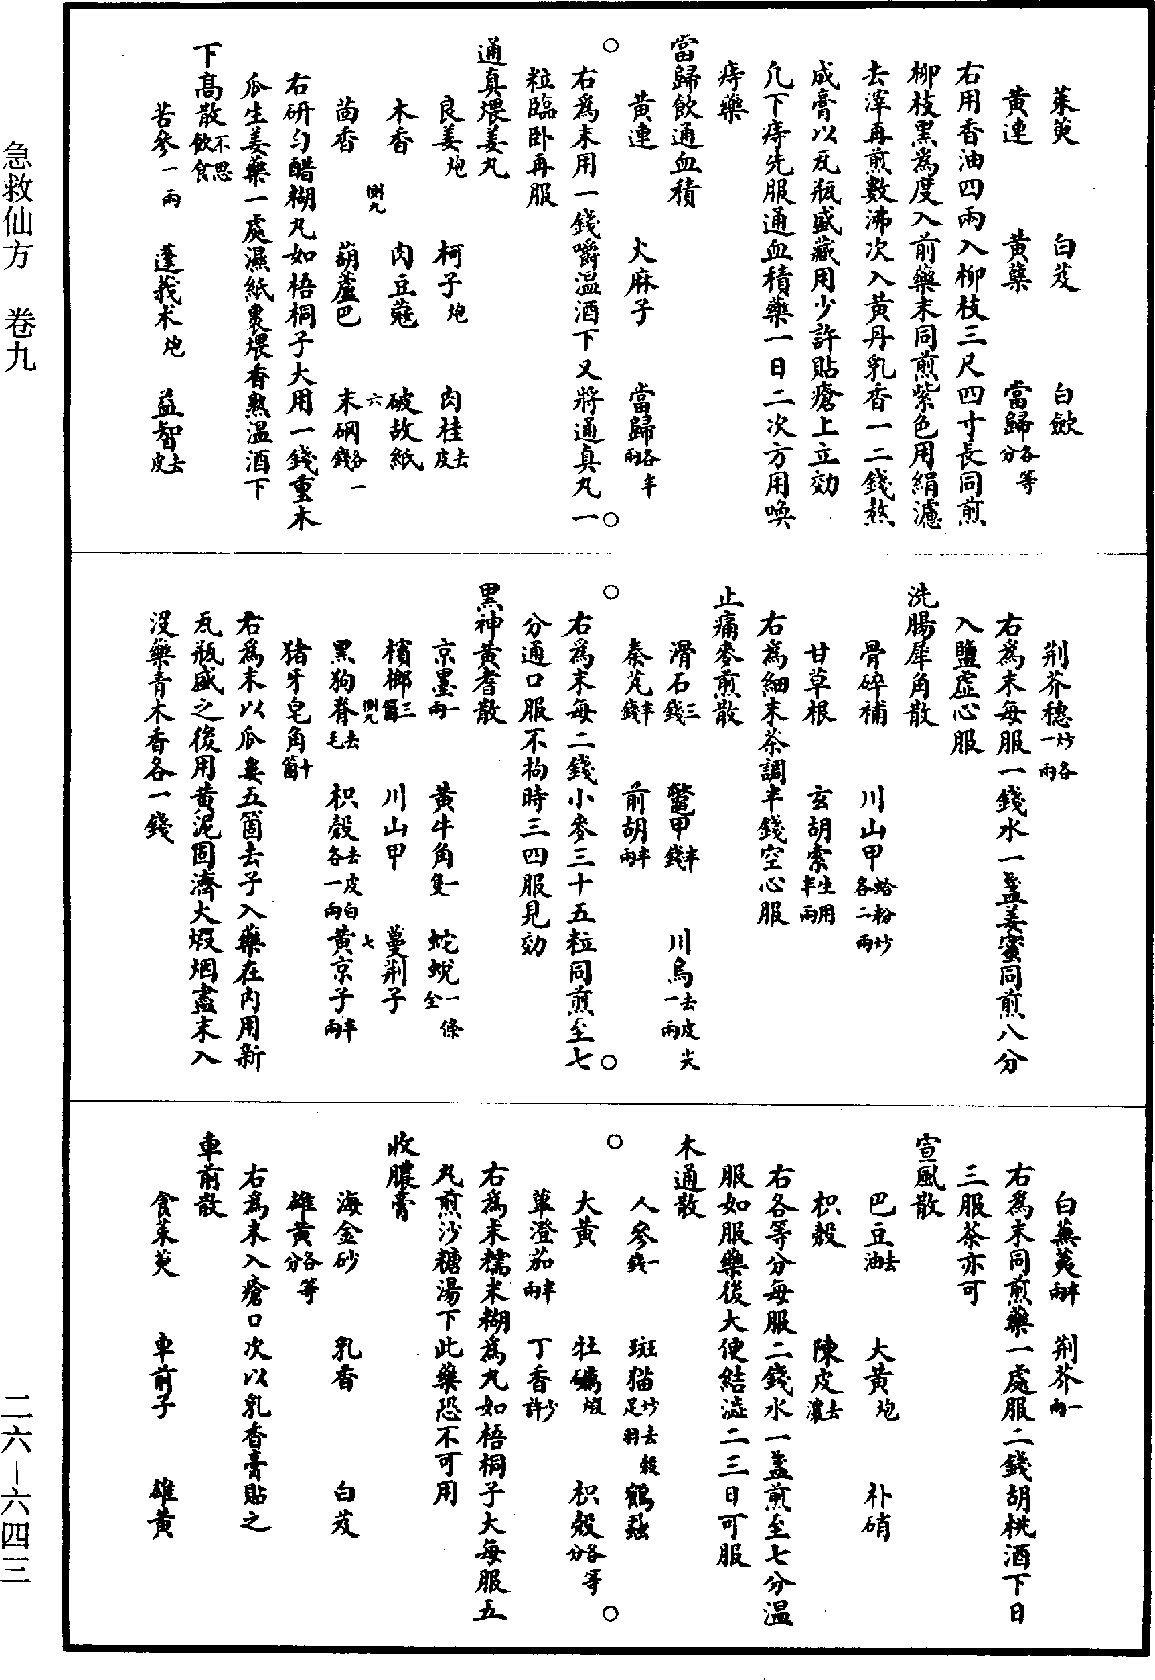 茱萸　白芨　白蘞
黄連　黄蘗　當歸各等分
右用香油四兩入柳枝三尺四寸長同煎
柳枝黒為度入前藥末同煎紫色用絹濾
去滓再煎數沸次入黄丹乳香一二錢熬
成膏以瓦瓶盛藏用少許貼瘡上立効
凡下痔先服通血積藥一日二次方用喚
痔藥
當歸飲通血積
黄連　大麻子　當歸各半兩
右為末用一錢嚼溫酒下又將通真丸一
粒臨卧再服
通真煨姜丸
良姜炮　柯子炮　肉桂去皮
木香　肉豆蔻　破故紙
茴香　葫蘆巴　末硇各一錢
右研勻醋糊丸如梧桐子大用一錢重木
瓜生姜藥一處濕紙裹煨香熟溫酒下
下高散不思飲食
苦參一兩　蓬莪朮炮　益智去皮
惻九　六
荆芥穗炒各一兩
右為末每服一錢水一盞姜蜜同煎八分
入鹽虛心服
洗腸犀角散
骨碎補　川山甲蛤粉炒各二兩
甘草根　玄胡索生用半兩
右為細末茶調半錢空心服
止痛麥煎散
滑石三錢　鱉甲半錢　川烏去皮尖一兩
秦艽半錢　前胡半兩
右為末每二錢小麥三十五粒同煎至七
分通口服不拘時三四服見効
黒神黄耆散
京墨一兩　黄牛角一隻　蛇蛻一條全
檳榔三箇　川山甲　蔓荆子
黒狗脊去毛　枳殼去皮白各一兩　黄京子半兩
猪牙皂角十箇
右為末以瓜蔞五箇去子入藥在内用新
瓦瓶盛之後用黄泥固濟大煆烟盡末入
沒藥青木香各一錢
惻九　七
白蕪荑半兩　荆芥一兩
右為末同煎藥一處服二錢胡桃酒下日
三服茶亦可
宣風散
巴豆去油　大黄炮　朴硝
枳殼　陳皮去瓤
右各等分每服二錢水一盞煎至七分溫
服如服藥後大便結澁二三日可服
木通散
人參一錢　斑猫炒去殼足羽　鶴蝨
大黄　牡礪煆　枳殼各等分
蓽澄茄半兩　丁香少許
右為末糯米糊為丸如梧桐子大每服五
丸煎沙糖湯下此藥恐不可用
收膿膏
海金砂　乳香　白芨
雄黄各等分
右為末入瘡口次以乳香膏貼之
車前散
食茱萸　車前子　雄黄
急救仙方　卷九
二六－六四三